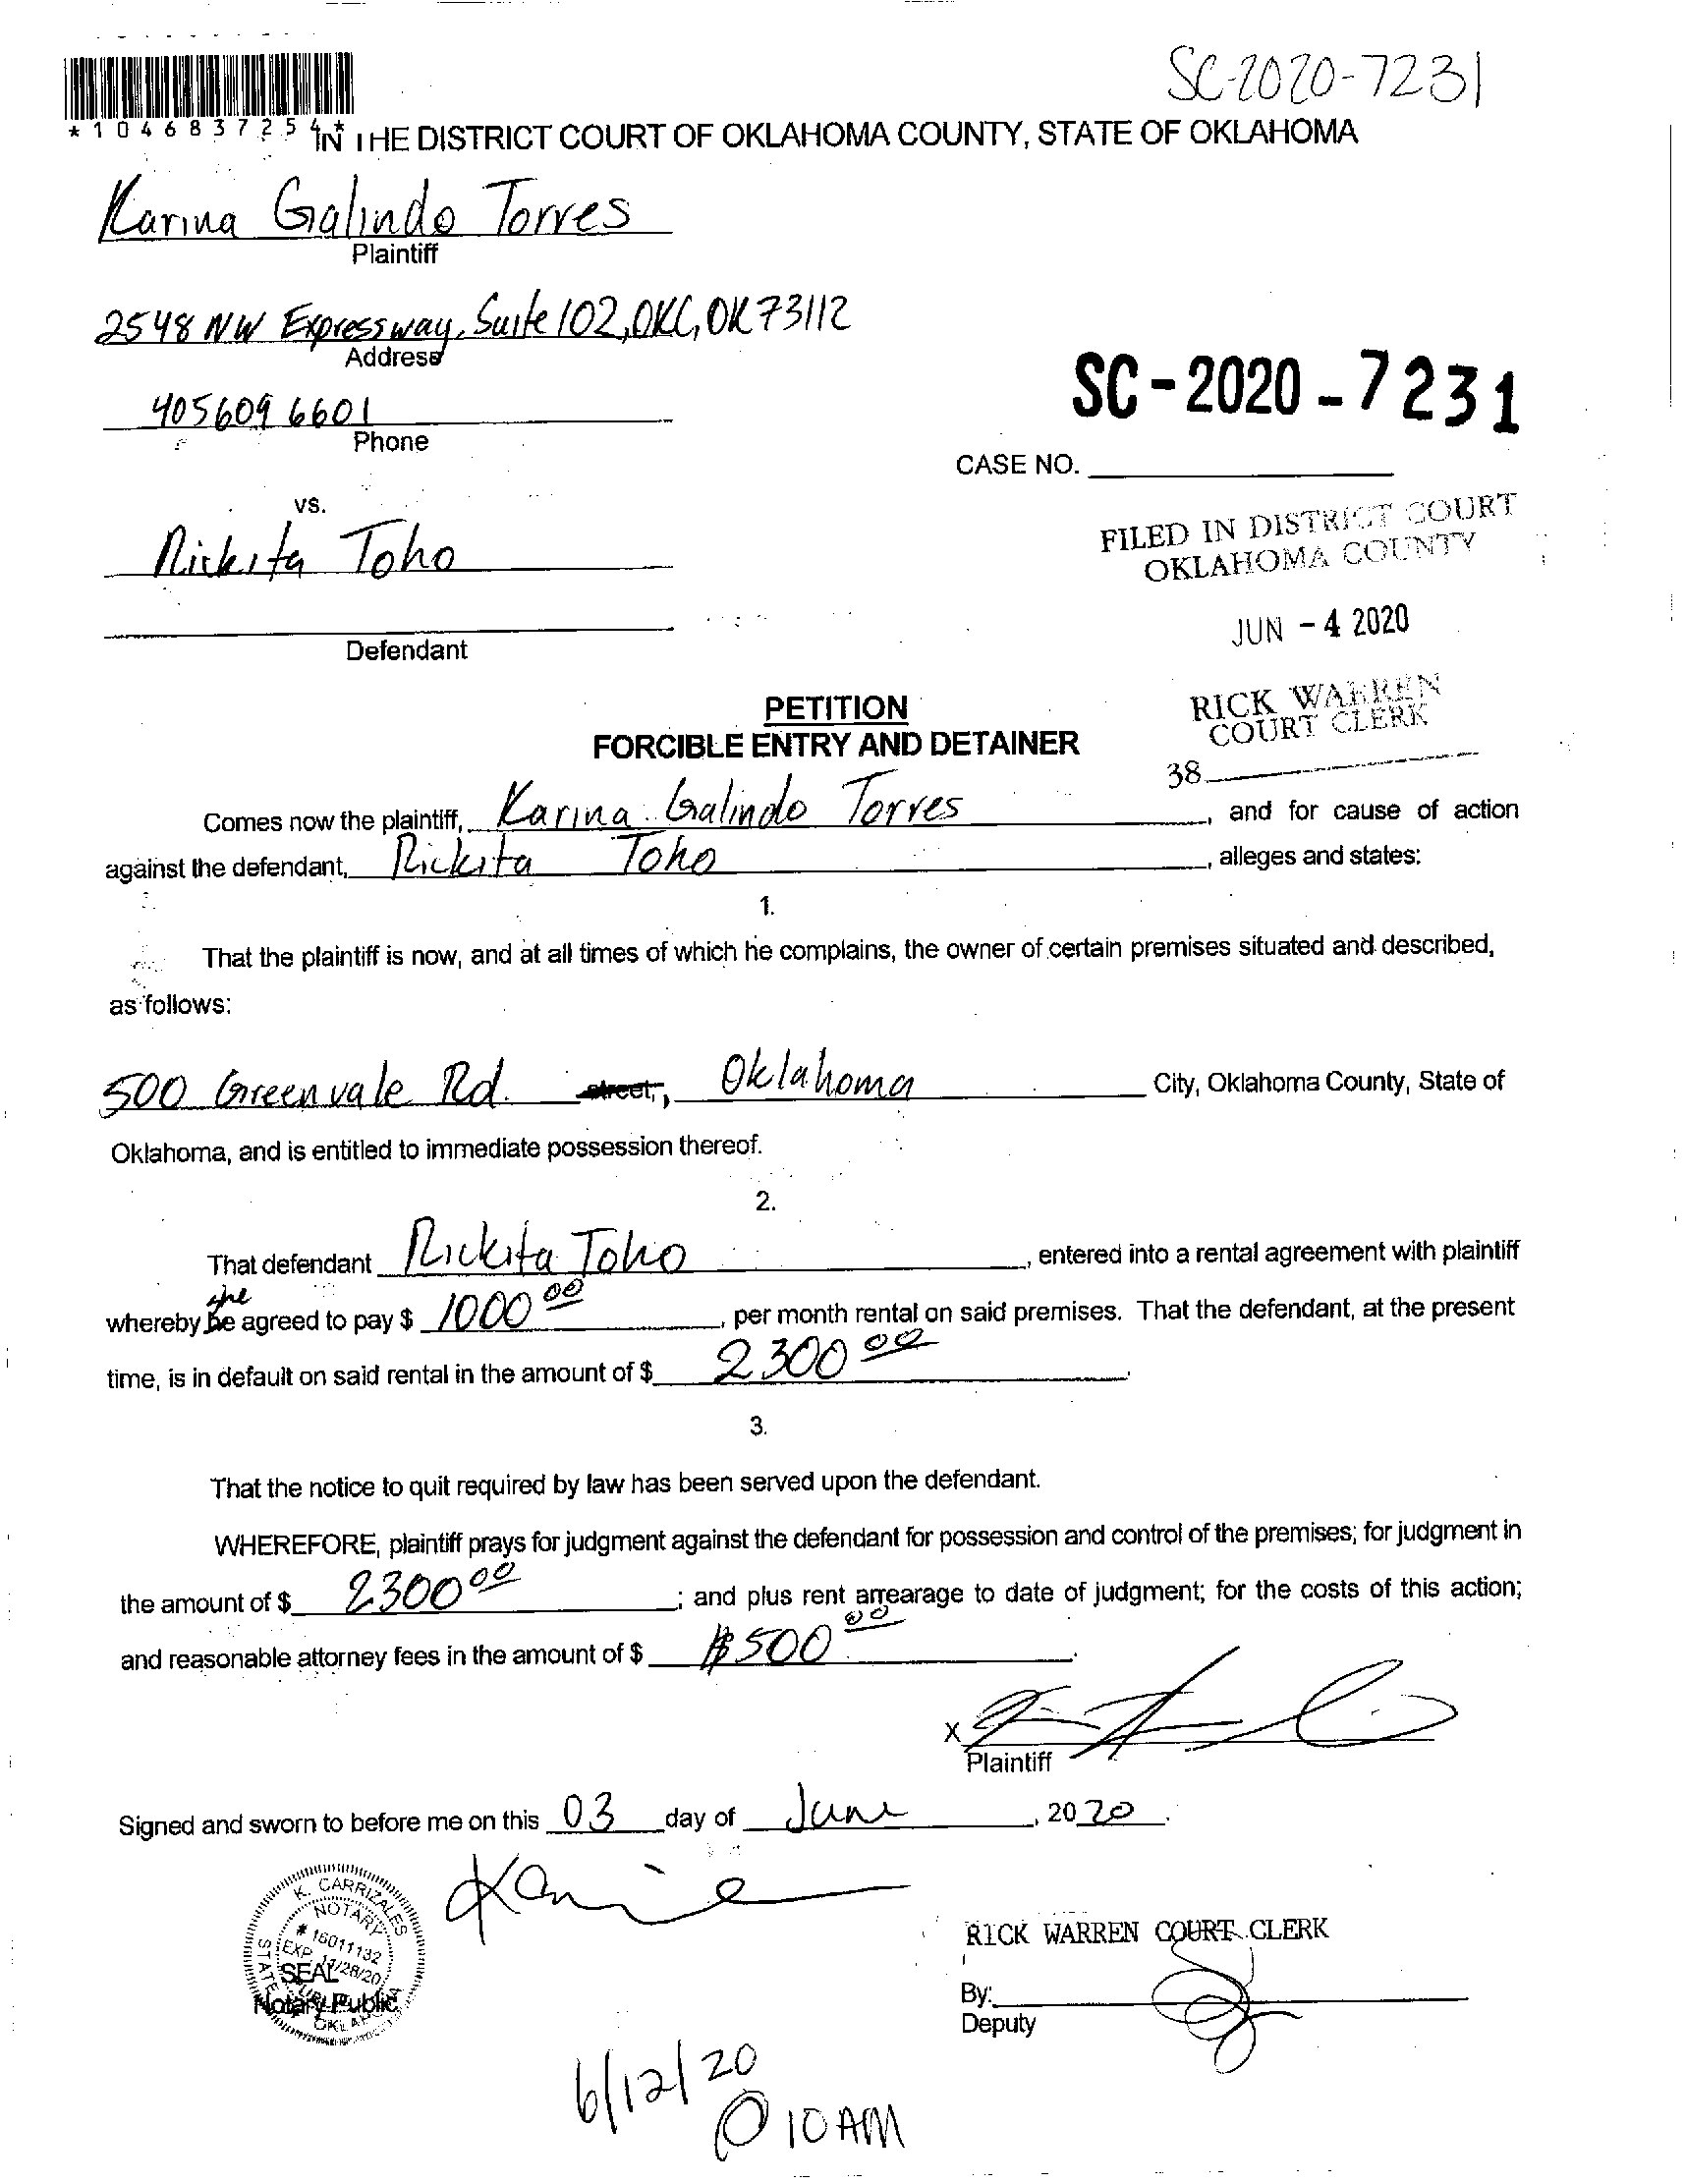 SC-2020-7231
*1046837254*
IN THE DISTRICT COURT OF OKLAHOMA COUNTY, STATE OF OKLAHOMA
Karina Galindo Torres
Plaintiff
2548 NW Expressway, Suite 102, OKC, OK 73112
Address
405 609 6601
Phone
SC-2020-7231
CASE NO.
vs.
Rickita Toho
Defendant
FILED IN DISTRICT COURT
OKLAHOMA COUNTY
JUN -4 2020
RICK WARREN
COURT CLERK
38
PETITION
FORCIBLE ENTRY AND DETAINER
Comes now the plaintiff, Karina Galindo Torres, and for cause of action
against the defendant, Rickita Toho, alleges and states:
1.
That the plaintiff is now, and at all times of which he complains, the owner of certain premises situated and described,
as follows:
500 Greenvale Rd. street, Oklahoma City, Oklahoma County, State of
Oklahoma, and is entitled to immediate possession thereof.
2.
That defendant Rickita Toho, entered into a rental agreement with plaintiff
she
whereby he agreed to pay $ 1000 00, per month rental on said premises. That the defendant, at the present
time, is in default on said rental in the amount of $ 2300 00.
3.
That the notice to quit required by law has been served upon the defendant.
WHEREFORE, plaintiff prays for judgment against the defendant for possession and control of the premises; for judgment in
the amount of $ 2300 00; and plus rent arrearage to date of judgment; for the costs of this action;
and reasonable attorney fees in the amount of $ $500 00.
X
Plaintiff
Signed and sworn to before me on this 03 day of June, 2020.
K. CARRIZALES
NOTARY
# 16011132
EXP. 11/28/20
SEAL
PUBLIC
STATE OKLAHOMA
Notary Public
RICK WARREN COURT CLERK
By:
Deputy
6/12/20
@ 10 AM